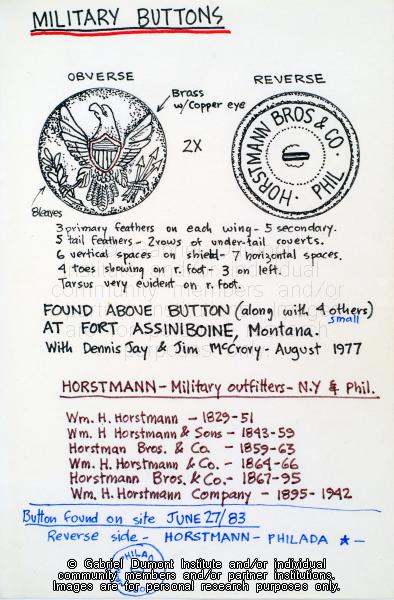 MILITARY BUTTONS
OBVERSE
REVERSE
Brass
w/Copper eye
2X
HORSTMANN BROS & CO. · PHIL ·
8 leaves
3 primary feathers on each wing - 5 secondary.
5 tail feathers - 2 rows of under-tail coverts.
6 vertical spaces on shield - 7 horizontal spaces.
4 toes showing on r. foot - 3 on left.
Tarsus very evident on r. foot.
FOUND ABOVE BUTTON (along with 4 others)
small
AT FORT ASSINIBOINE, Montana.
With Dennis Jay & Jim McCrory - August 1977
HORSTMANN - Military outfitters - N.Y & Phil.
Wm. H. Horstmann - 1829-51
Wm. H Horstmann & Sons - 1843-59
Horstman Bros. & Co. - 1859-63
Wm. H. Horstmann & Co. - 1864-66
Horstmann Bros. & Co. - 1867-95
Wm. H. Horstmann Company - 1895-1942
Button found on site JUNE 27/83
Reverse side - HORSTMANN - PHILADA ★ -
PHILAD
© Gabriel Dumont Institute and/or individual
community members and/or partner institutions.
Images are for personal research purposes only.